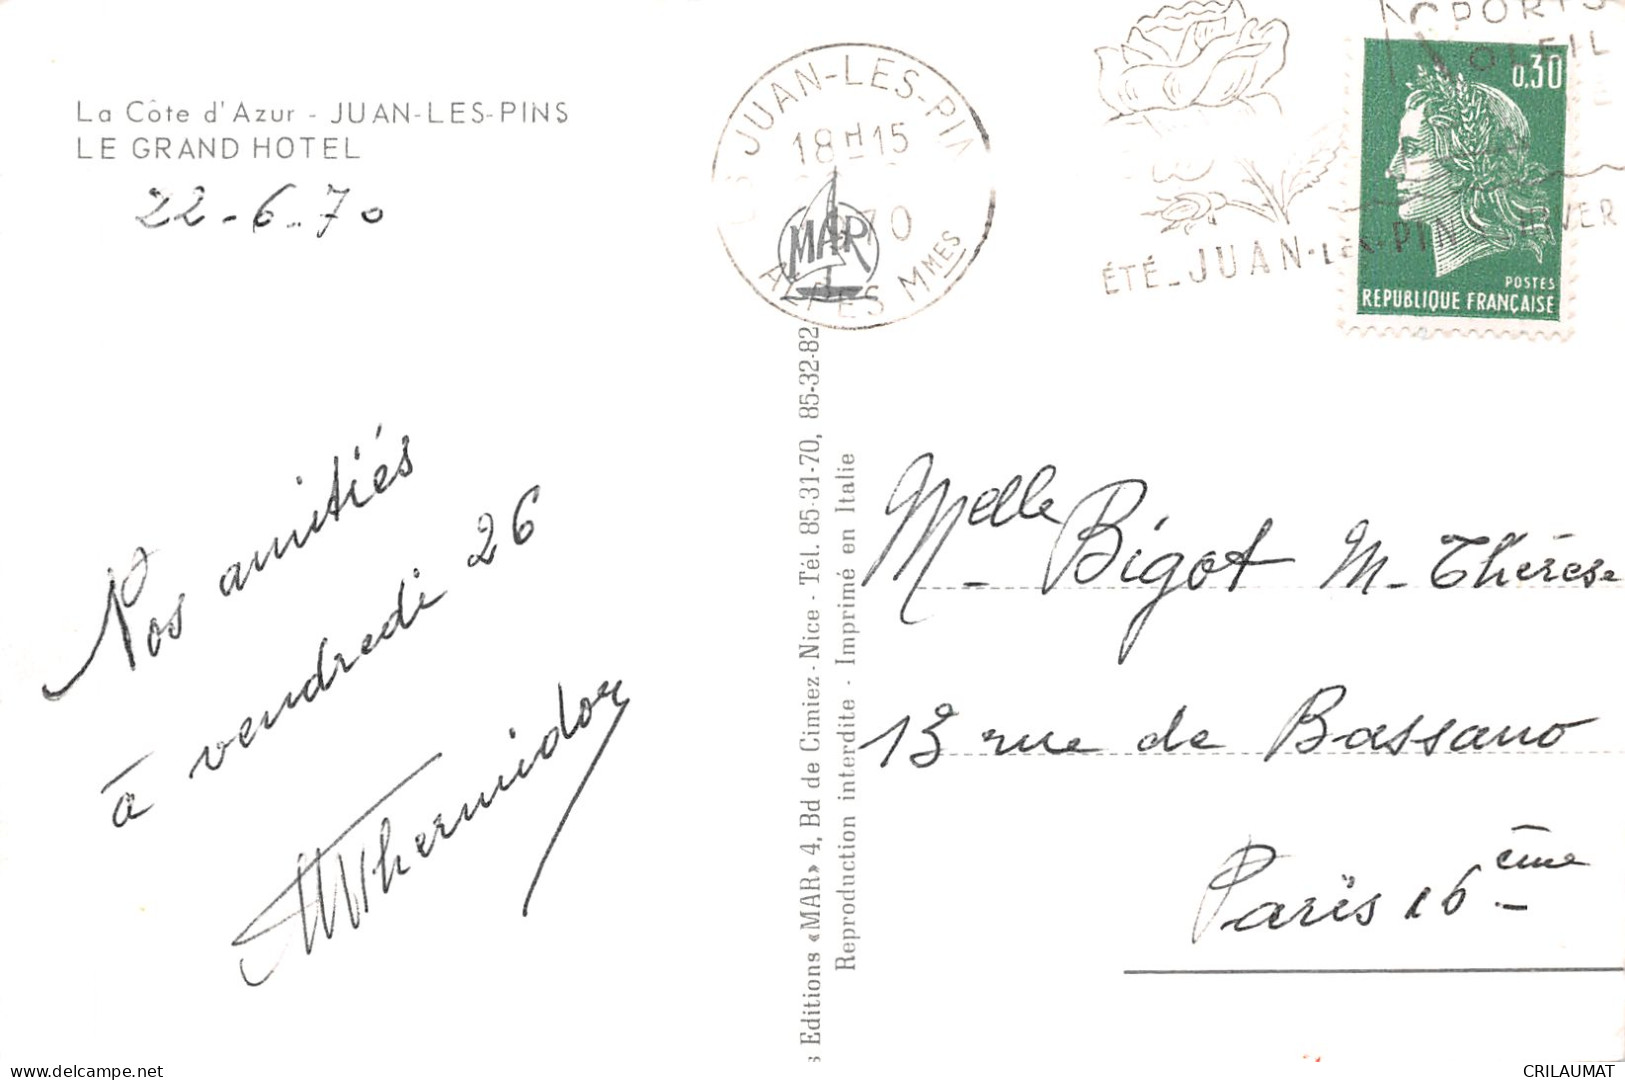 La Côte d'Azur - JUAN-LES-PINS
LE GRAND HOTEL
22-6-70
Nos amitiés
à vendredi 26
JUAN-LES-PIN
18H15
70
ALPES MMES
MAR
PORTS
OLEIL
ÉTÉ_JUAN-LES-PINS HIVER
0,30
POSTES
REPUBLIQUE FRANÇAISE
s Editions «MAR» 4, Bd de Cimiez - Nice - Tél. 85-31-70, 85-32-82
Reproduction interdite - Imprimé en Italie
Melle Bigot M-Thérèse
13 rue de Bassano
Paris 16ème
CRILAUMAT